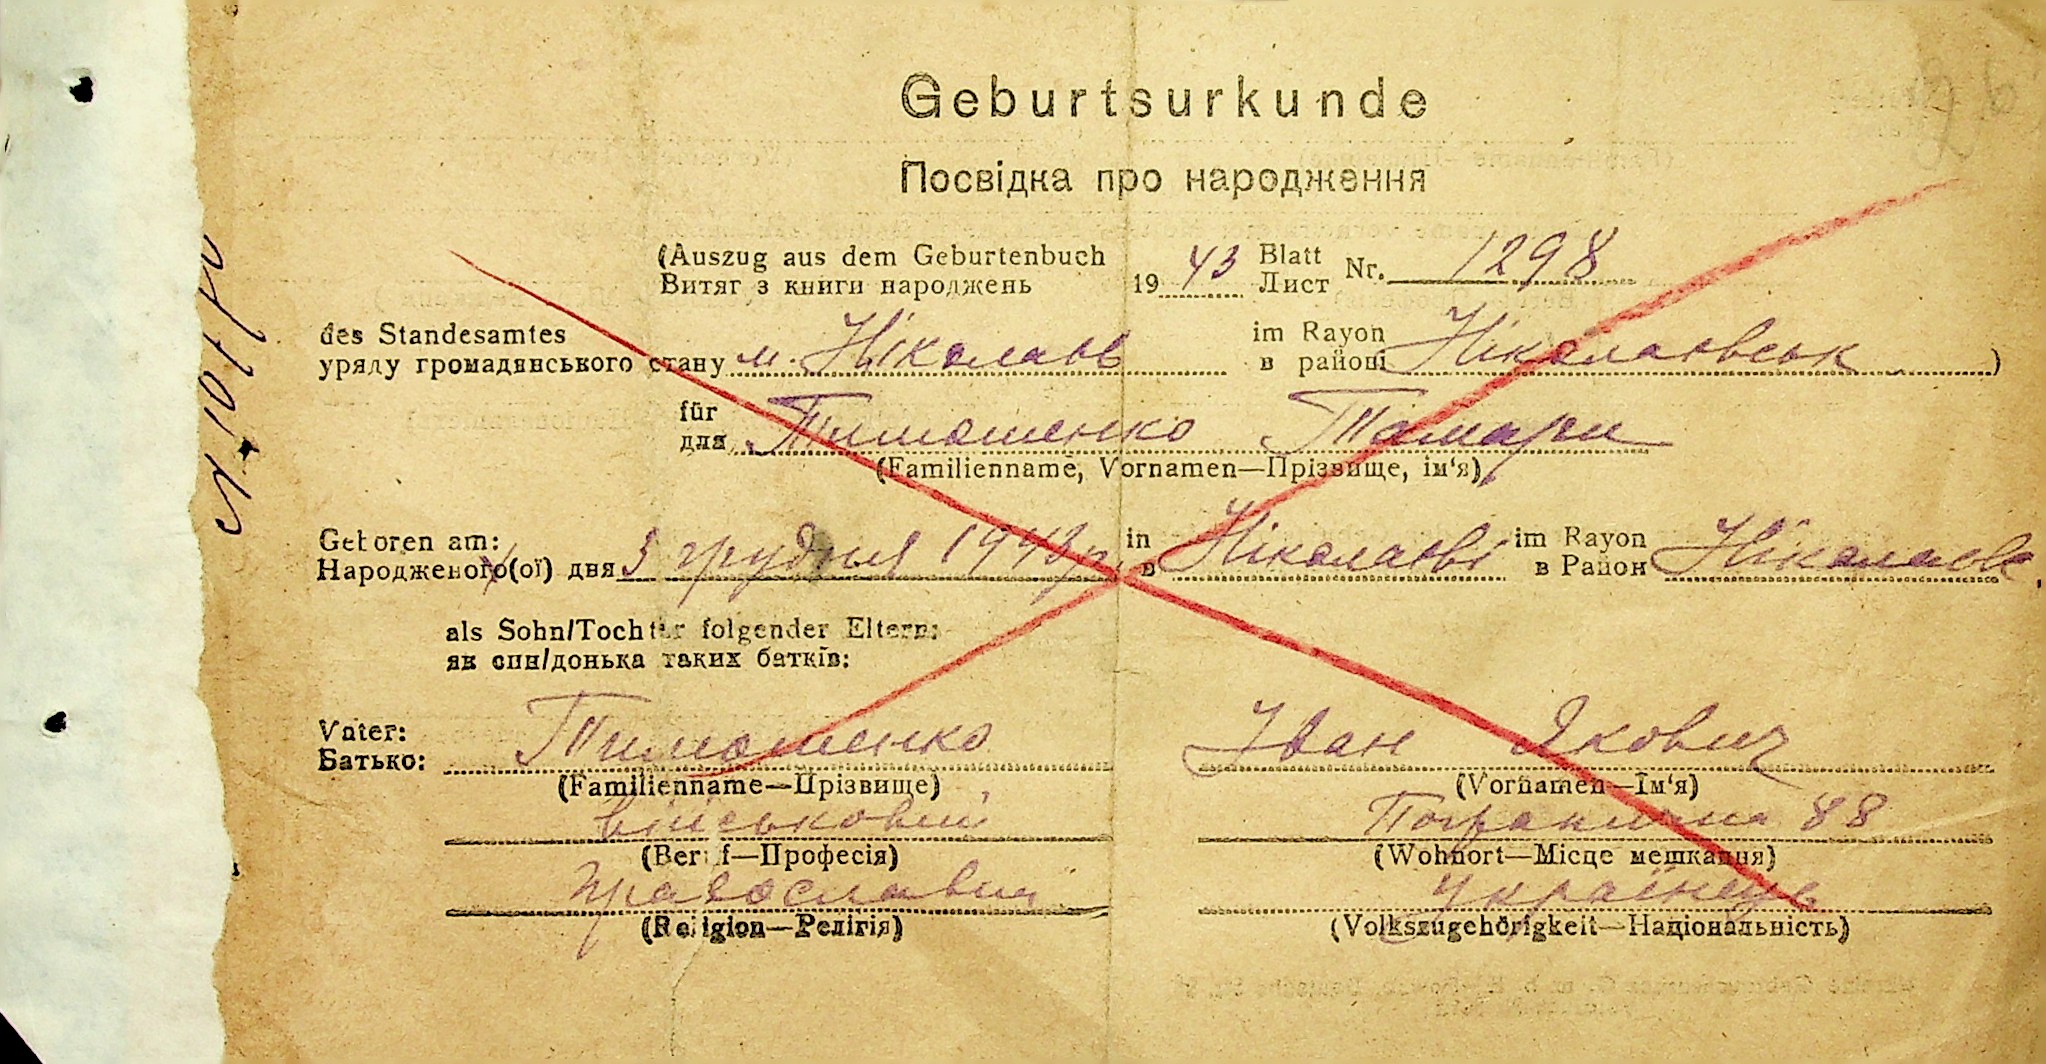 Geburtsurkunde
Посвідка про народження
(Auszug aus dem Geburtenbuch
Витяг з книги народжень 1943 Blatt Лист Nr. 1298
des Standesamtes im Rayon
уряду громадянського стану м. Ніколаєв в районі Ніколаєвськ )
für
для Тимошенко Тамари
(Familienname, Vornamen—Прізвище, ім'я)
Geboren am: in im Rayon
Народженого(ої) дня 5 грудня 1943р в Ніколаєві в Район Ніколаєв.
als Sohn/Tochter folgender Eltern:
як син/донька таких батків:
Vater:
Батько: Тимошенко Іван Якович
(Familienname—Прізвище) (Vornamen—Ім'я)
військовий Погранична 88
(Beruf—Професія) (Wohnort—Місце мешкання)
православний українець
(Religion—Релігія) (Volkszugehörigkeit—Національність)